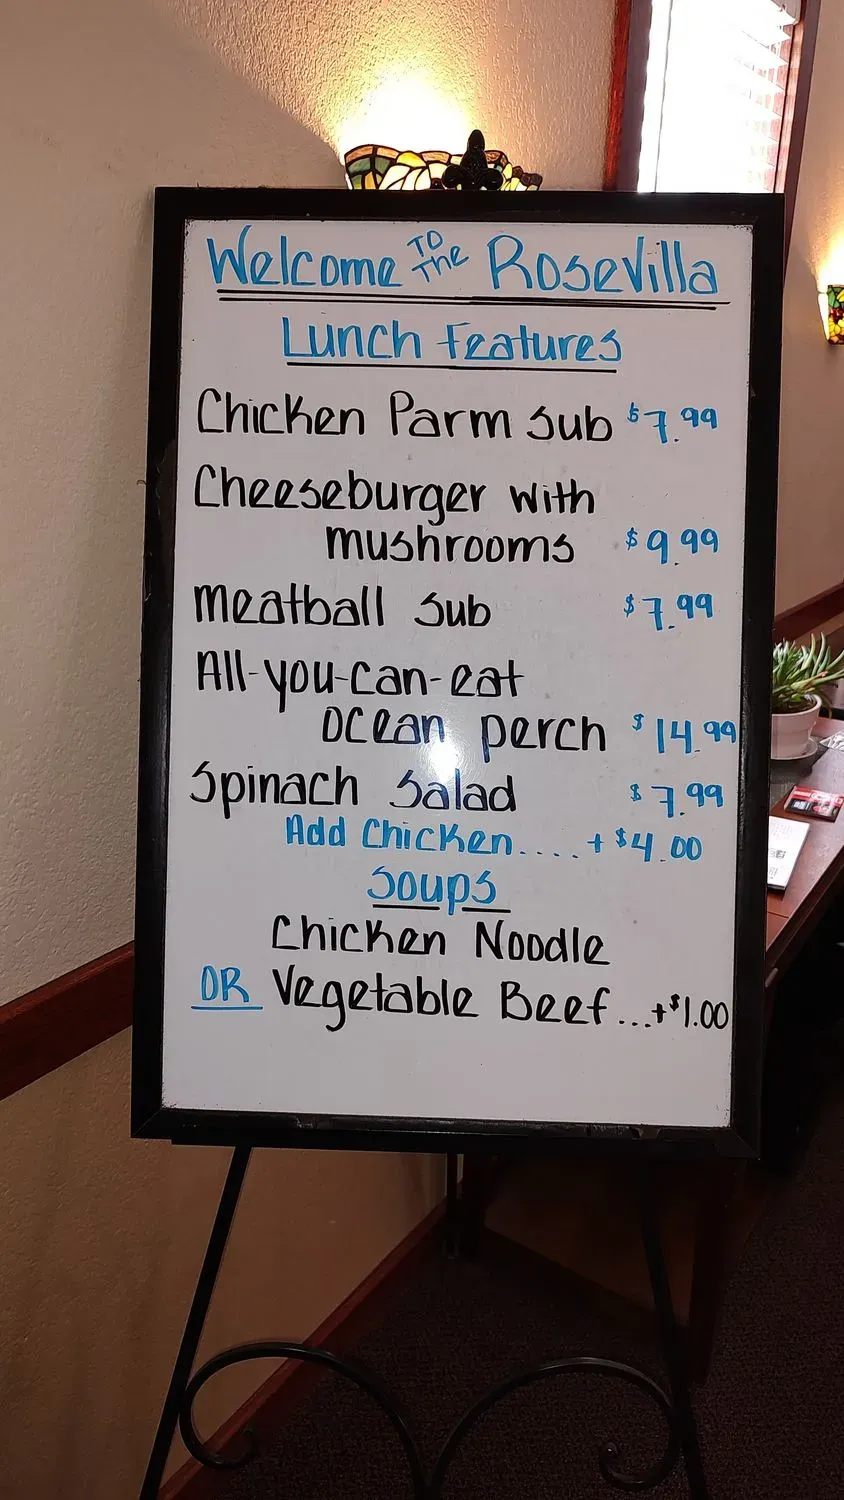 Welcome TO The Rosevilla
Lunch Features
Chicken Parm Sub $7.99
Cheeseburger with
mushrooms $9.99
Meatball Sub $7.99
All-you-can-eat
ocean perch $14.99
Spinach Salad $7.99
Add Chicken.... + $4.00
Soups
Chicken Noodle
OR Vegetable Beef...+$1.00